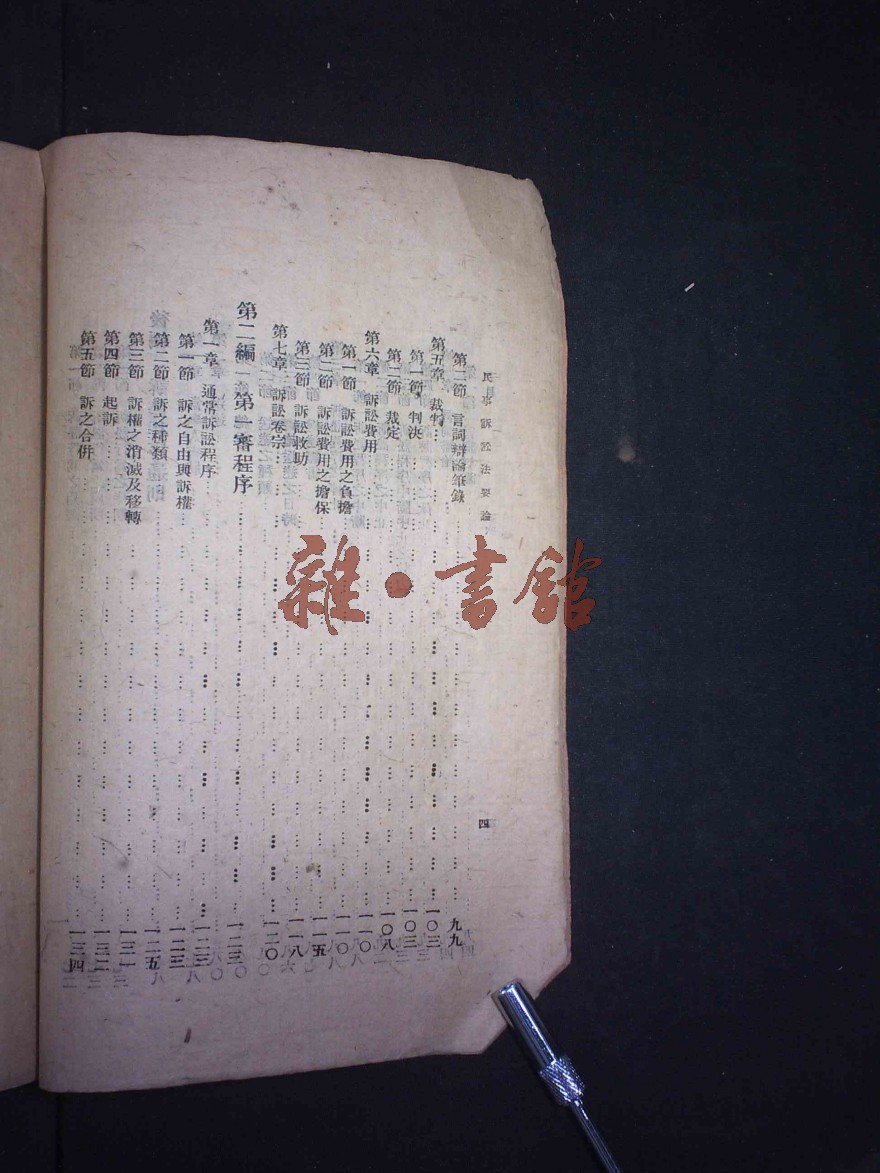 民事訴訟法要論
四
第二節 言詞辯論筆錄 九九
第五章 裁判 一〇三
第一節 判決 一〇三
第二節 裁定 一〇八
第六章 訴訟費用 一一〇
第一節 訴訟費用之負擔 一一〇
第二節 訴訟費用之擔保 一一五
第三節 訴訟救助 一一八
第七章 訴訟卷宗 一二〇
第二編 第一審程序 一二三
第一章 通常訴訟程序 一二三
第一節 訴之自由與訴權 一二三
第二節 訴之種類 一二五
第三節 訴權之消滅及移轉 一三一
第四節 起訴 一三二
第五節 訴之合併 一三四
雜·書館